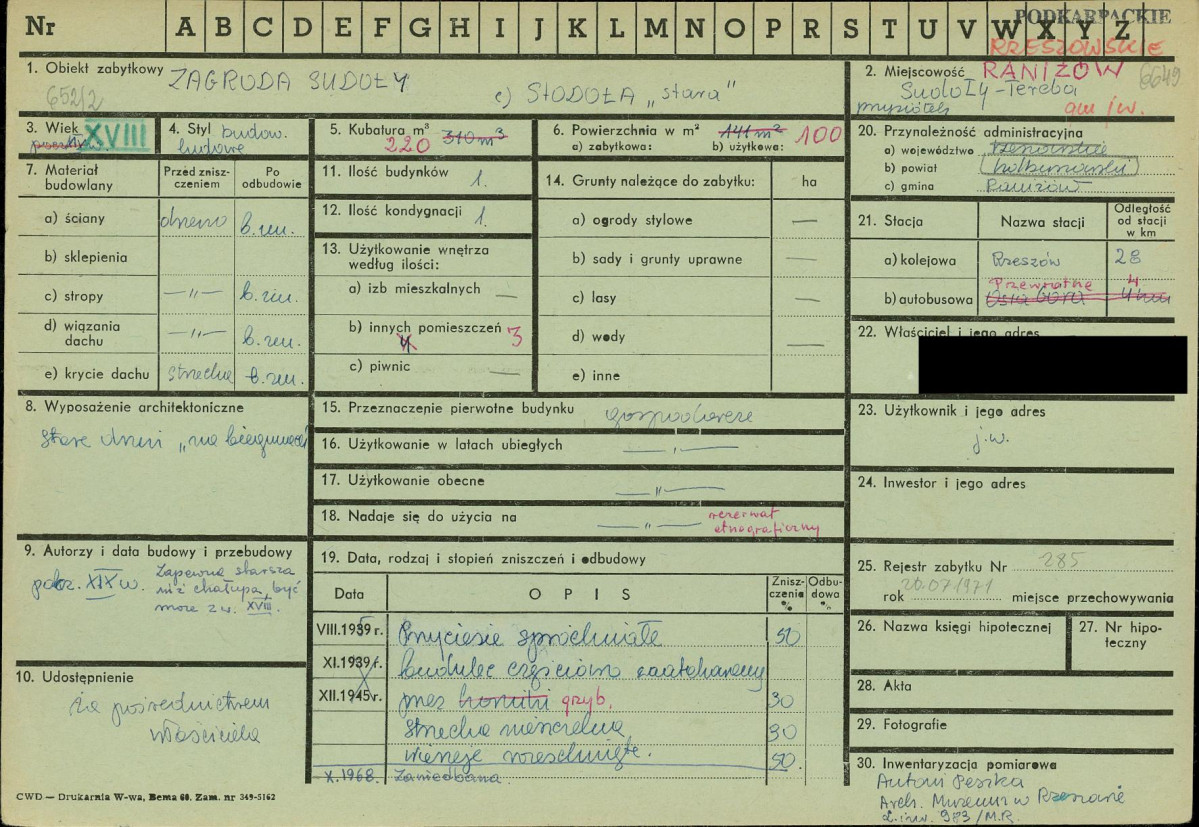 Nr A B C D E F G H I J K L M N O P R S T U V W X Y Z
PODKARPACKIE
RZESZOWSKIE
1. Obiekt zabytkowy ZAGRODA SUDOŁY
c) STODOŁA „stara"
652/2
2. Miejscowość RANIŻÓW 6649
Sudoły-Tereba
przysiółek gm j/w.
3. Wiek XVIII
4. Styl budow.
ludowe
5. Kubatura m³ 310 m³
220
6. Powierzchnia w m² 141 m² 100
a) zabytkowa: b) użytkowa:
20. Przynależność administracyjna
a) województwo rzeszowskie
b) powiat kolbuszowski
c) gmina Raniżów
7. Materiał budowlany Przed zniszczeniem Po odbudowie
a) ściany drewno b. zm.
b) sklepienia
c) stropy —„— b. zm.
d) wiązania dachu —„— b. zm.
e) krycie dachu strzecha b. zm.
11. Ilość budynków 1.
12. Ilość kondygnacji 1.
13. Użytkowanie wnętrza
według ilości:
a) izb mieszkalnych —
b) innych pomieszczeń 3
4
c) piwnic —
14. Grunty należące do zabytku: ha
a) ogrody stylowe —
b) sady i grunty uprawne —
c) lasy —
d) wody —
e) inne
21. Stacja Nazwa stacji Odległość od stacji w km
a) kolejowa Rzeszów 28
Przewrotne 4
b) autobusowa Ostra Góra 4 km
22. Właściciel i jego adres
8. Wyposażenie architektoniczne
stare drzwi „na biegunach"
15. Przeznaczenie pierwotne budynku gospodarcze
16. Użytkowanie w latach ubiegłych —„—
17. Użytkowanie obecne —„—
18. Nadaje się do użycia na —„— rezerwat
etnograficzny
23. Użytkownik i jego adres
j.w.
24. Inwestor i jego adres
9. Autorzy i data budowy i przebudowy
pocz. XIX w. Zapewne starsza
niż chałupa, być
może z w. XVIII.
19. Data, rodzaj i stopień zniszczeń i odbudowy
Data OPIS Zniszczenia % Odbudowa %
VIII.1939 r. Przyciesie spróchniałe 50
XI.1939 r. budulec częściowo zaatakowany
XII.1945 r. przez korniki grzyb. 30
strzecha nieszczelna 30
wierzeje rozeschnięte. 50.
X.1968. Zaniedbana
25. Rejestr zabytku Nr 285
20.07.1971
rok miejsce przechowywania
26. Nazwa księgi hipotecznej
27. Nr hipoteczny
10. Udostępnienie
Za pośrednictwem
właściciela
28. Akta
29. Fotografie
30. Inwentaryzacja pomiarowa
Antoni Peszka
Arch. Muzeum w Rzeszowie
L. inw. 983/M.R.
CWD — Drukarnia W-wa, Bema 60. Zam. nr 349-5162